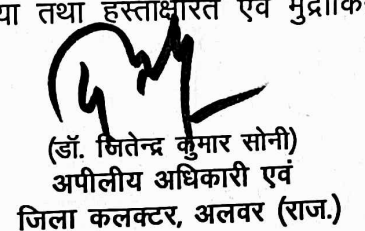 या तथा हस्ताक्षरित एवं मुद्रांकि
(डॉ. जितेन्द्र कुमार सोनी)
अपीलीय अधिकारी एवं
जिला कलक्टर, अलवर (राज.)